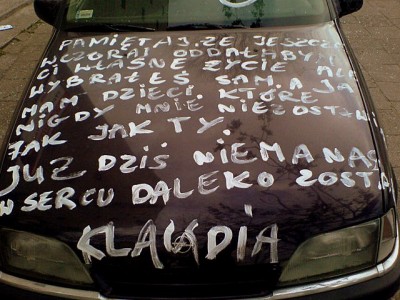 PAMIĘTAJ, ŻE JESZCZE
WCZORAJ ODDAŁABYM
CI WŁASNE ŻYCIE ALE
WYBRAŁEŚ SAM, A JA
MAM DZIECI, KTÓRE
NIGDY MNIE NIE ZOSTAWI
JAK JAK TY.
JUŻ DZIŚ NIE MA NAS
W SERCU DALEKO ZOSTA
KLAUDIA